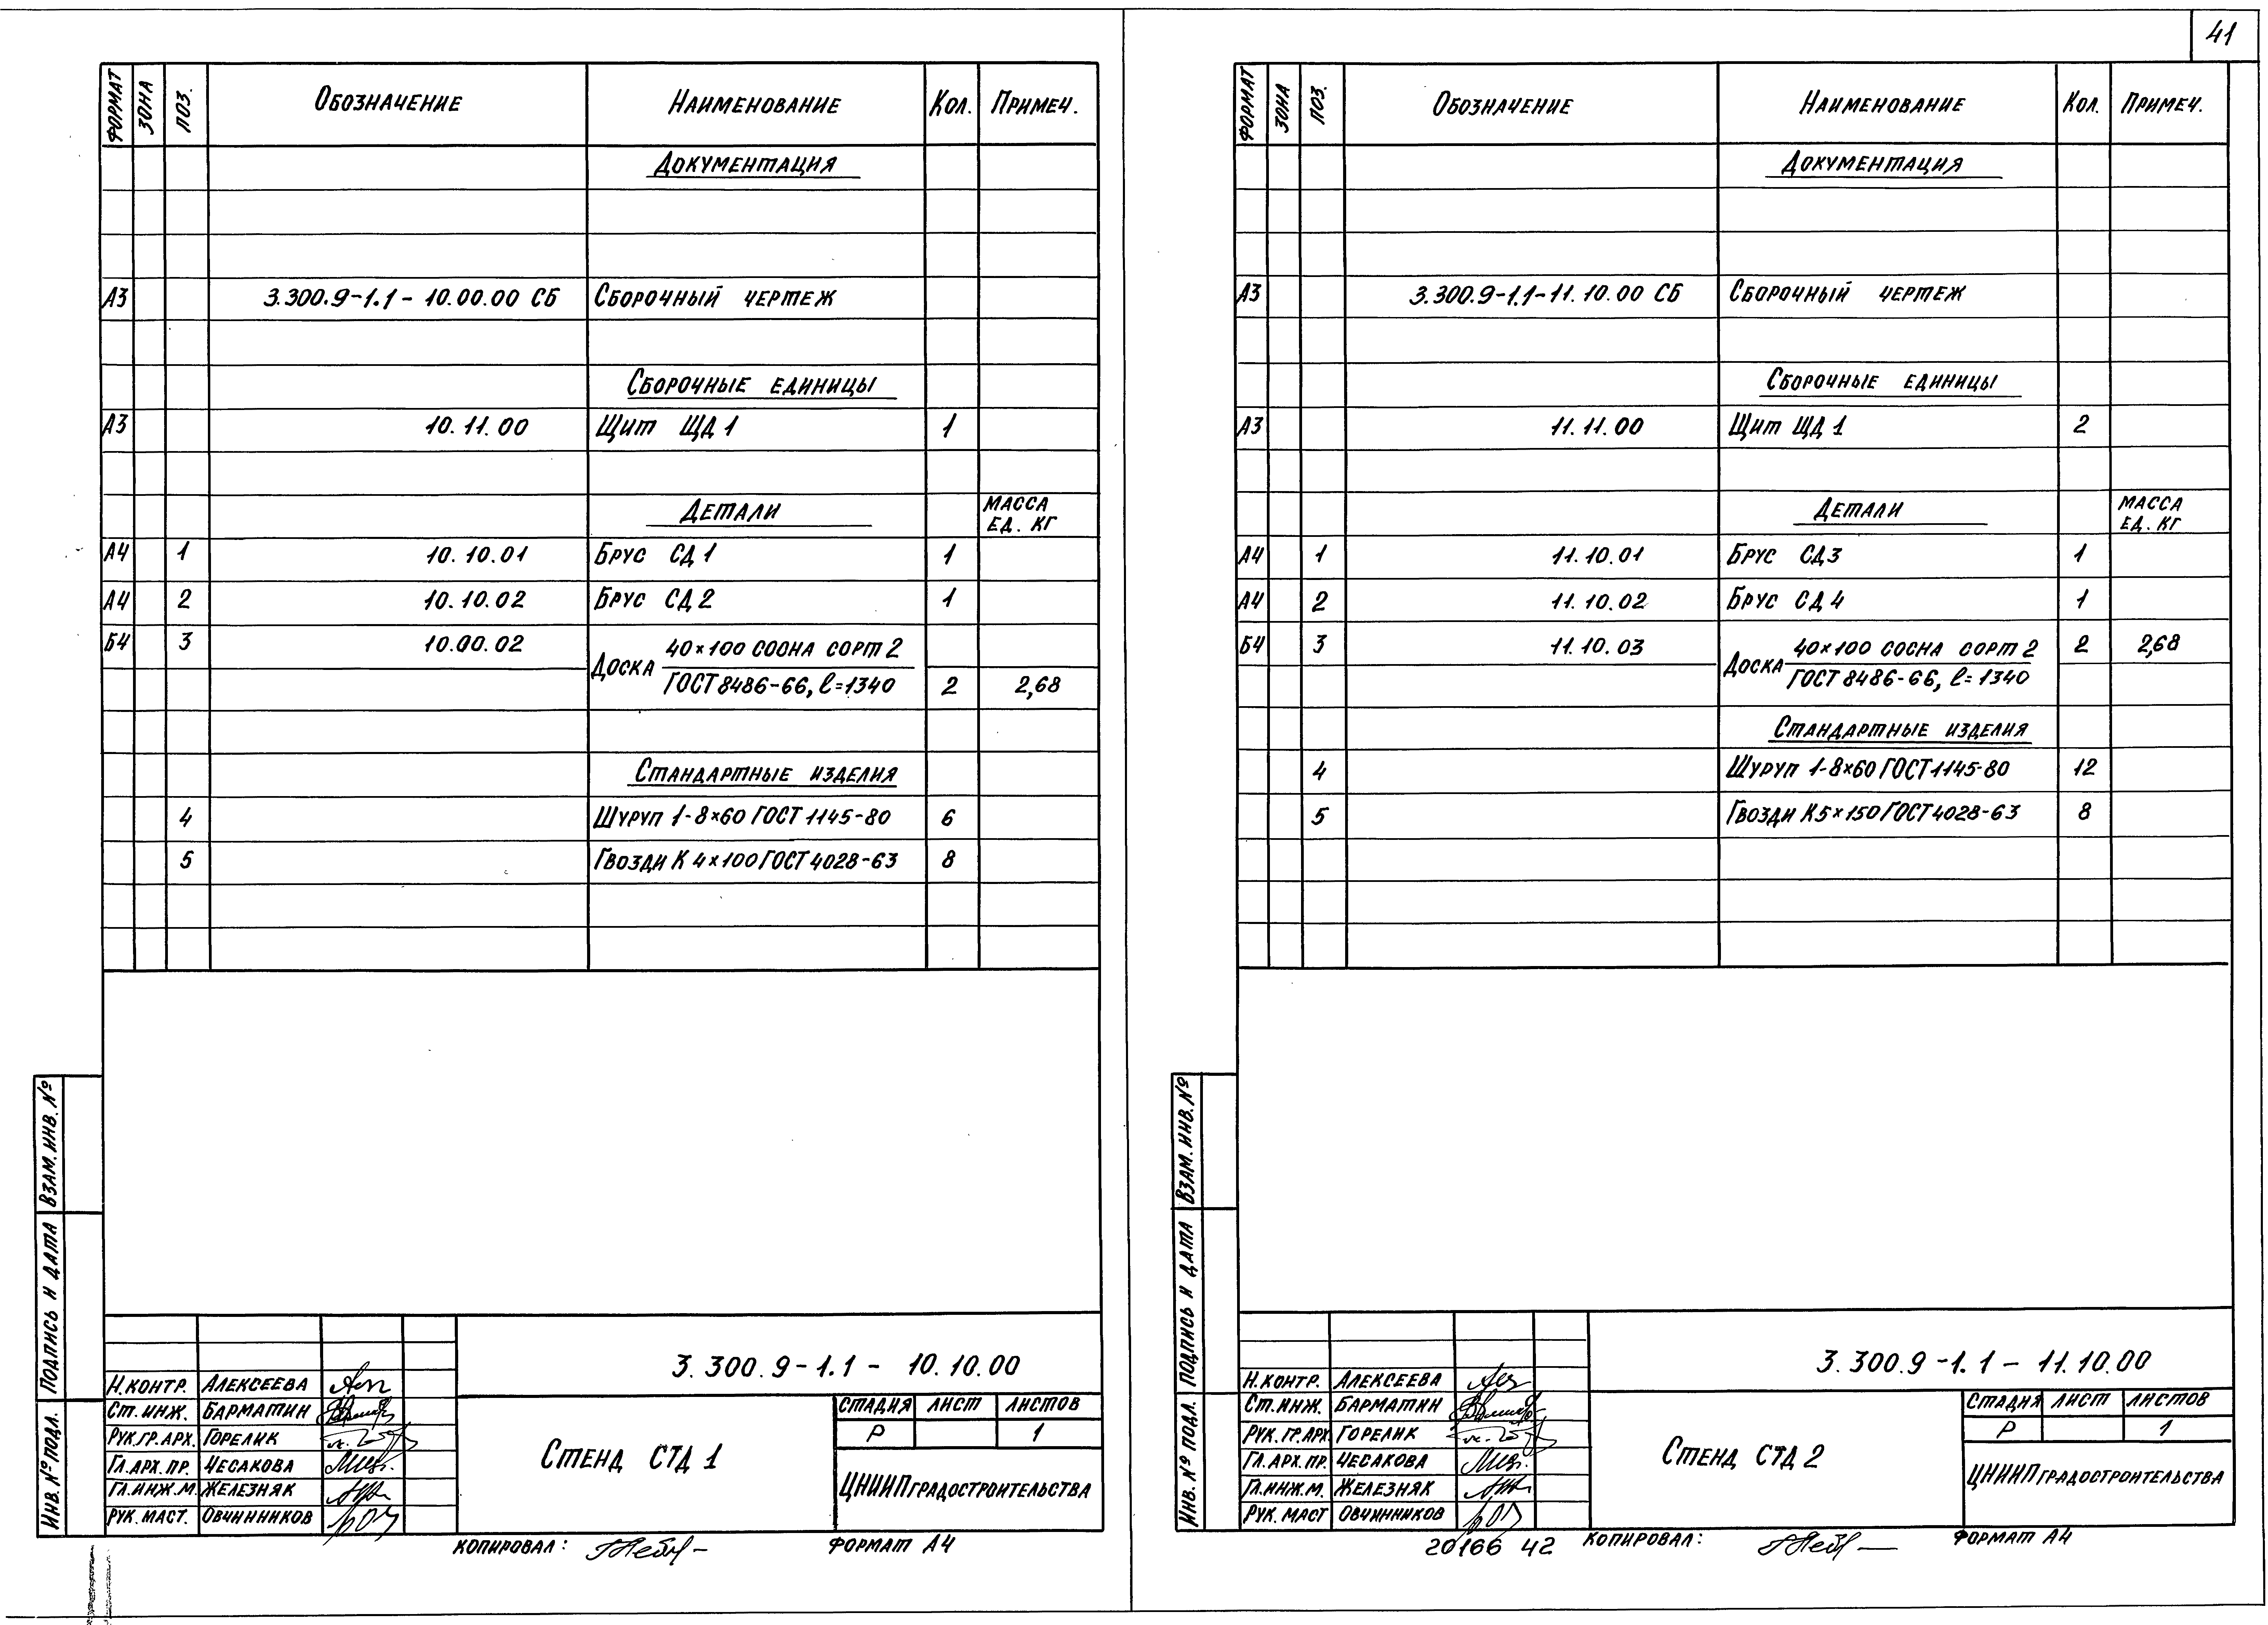 41
ФОРМАТ ЗОНА ПОЗ. ОБОЗНАЧЕНИЕ НАИМЕНОВАНИЕ КОЛ. ПРИМЕЧ.
ДОКУМЕНТАЦИЯ
А3 3.300.9-1.1-10.00.00 СБ СБОРОЧНЫЙ ЧЕРТЕЖ
СБОРОЧНЫЕ ЕДИНИЦЫ
А3 10.11.00 ЩИТ ЩД 1 1
ДЕТАЛИ МАССА
ЕД. КГ
А4 1 10.10.01 БРУС СД 1 1
А4 2 10.10.02 БРУС СД 2 1
Б4 3 10.00.02 ДОСКА 40×100 СОСНА СОРТ 2
ГОСТ 8486-66, ℓ=1340 2 2,68
СТАНДАРТНЫЕ ИЗДЕЛИЯ
4 ШУРУП 1-8×60 ГОСТ 1145-80 6
5 ГВОЗДИ К 4×100 ГОСТ 4028-63 8
ВЗАМ. ИНВ. №
ПОДПИСЬ И ДАТА
ИНВ. № ПОДЛ.
3.300.9-1.1- 10.10.00
Н.КОНТР. АЛЕКСЕЕВА
СТ. ИНЖ. БАРМАТИН
РУК.ГР.АРХ. ГОРЕЛИК
ГЛ.АРХ.ПР. ЧЕСАКОВА
ГЛ.ИНЖ.М. ЖЕЛЕЗНЯК
РУК. МАСТ. ОВЧИННИКОВ
СТЕНД СТД 1
СТАДИЯ ЛИСТ ЛИСТОВ
Р 1
ЦНИИПГРАДОСТРОИТЕЛЬСТВА
КОПИРОВАЛ: ФОРМАТ А4
ФОРМАТ ЗОНА ПОЗ. ОБОЗНАЧЕНИЕ НАИМЕНОВАНИЕ КОЛ. ПРИМЕЧ.
ДОКУМЕНТАЦИЯ
А3 3.300.9-1.1-11.10.00 СБ СБОРОЧНЫЙ ЧЕРТЕЖ
СБОРОЧНЫЕ ЕДИНИЦЫ
А3 11.11.00 ЩИТ ЩД 1 2
ДЕТАЛИ МАССА
ЕД. КГ
А4 1 11.10.01 БРУС СД3 1
А4 2 11.10.02 БРУС СД 4 1
Б4 3 11.10.03 ДОСКА 40×100 СОСНА СОРТ 2 2 2,68
ГОСТ 8486-66, ℓ=1340
СТАНДАРТНЫЕ ИЗДЕЛИЯ
4 ШУРУП 1-8×60 ГОСТ 1145-80 12
5 ГВОЗДИ К5×150 ГОСТ 4028-63 8
ВЗАМ. ИНВ. №
ПОДПИСЬ И ДАТА
ИНВ. № ПОДЛ.
3.300.9-1.1- 11.10.00
Н.КОНТР. АЛЕКСЕЕВА
СТ. ИНЖ. БАРМАТИН
РУК. ГР.АРХ. ГОРЕЛИК
ГЛ.АРХ.ПР. ЧЕСАКОВА
ГЛ.ИНЖ.М. ЖЕЛЕЗНЯК
РУК. МАСТ ОВЧИННИКОВ
СТЕНД СТД 2
СТАДИЯ ЛИСТ ЛИСТОВ
Р 1
ЦНИИПГРАДОСТРОИТЕЛЬСТВА
20166 42 КОПИРОВАЛ: ФОРМАТ А4